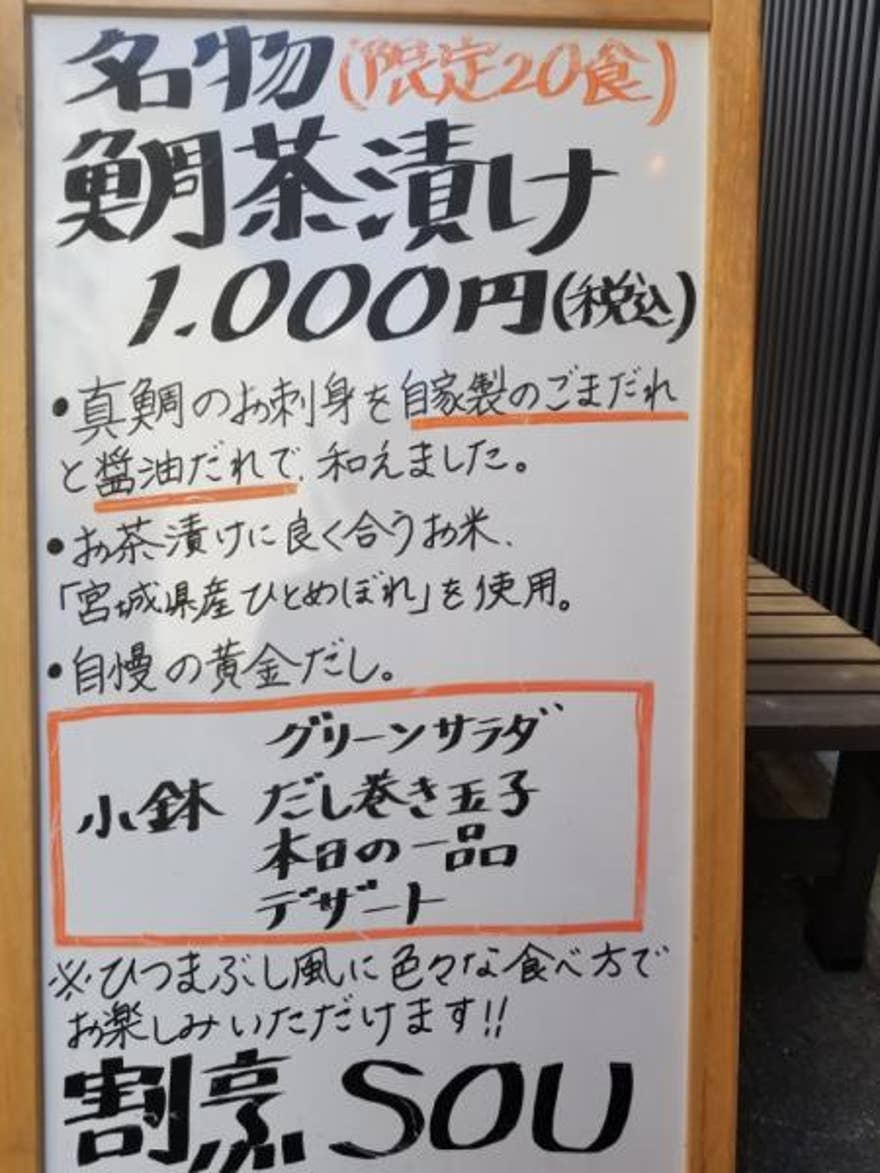 名物(限定20食)
鯛茶漬け
1.000円(税込)
・真鯛のお刺身を自家製のごまだれ
と醤油だれで、和えました。
・お茶漬けに良く合うお米、
「宮城県産ひとめぼれ」を使用。
・自慢の黄金だし。
グリーンサラダ
小鉢 だし巻き玉子
本日の一品
デザート
※ひつまぶし風に色々な食べ方で
お楽しみいただけます!!
割烹 SOU